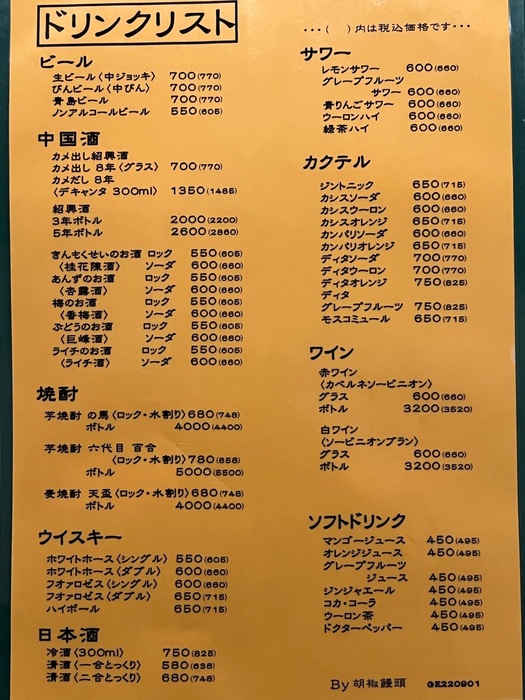 ドリンクリスト
ビール
生ビール〈中ジョッキ〉 700(770)
びんビール〈中びん〉 700(770)
青島ビール 700(770)
ノンアルコールビール 550(605)
中国酒
カメ出し紹興酒
カメ出し 8年〈グラス〉 700(770)
カメだし 8年
〈デキャンタ 300ml〉 1350(1485)
紹興酒
3年ボトル 2000(2200)
5年ボトル 2600(2860)
きんもくせいのお酒 ロック 550(605)
〈桂花陳酒〉 ソーダ 600(660)
あんずのお酒 ロック 550(605)
〈杏露酒〉 ソーダ 600(660)
梅のお酒 ロック 550(605)
〈香梅酒〉 ソーダ 600(660)
ぶどうのお酒 ロック 550(605)
〈巨峰酒〉 ソーダ 600(660)
ライチのお酒 ロック 550(605)
〈ライチ酒〉 ソーダ 600(660)
焼酎
芋焼酎 の馬〈ロック・水割り〉680(748)
ボトル 4000(4400)
芋焼酎 六代目 百合
〈ロック・水割り〉780(858)
ボトル 5000(5500)
麦焼酎 天盃〈ロック・水割り〉680(748)
ボトル 4000(4400)
ウイスキー
ホワイトホース〈シングル〉 550(605)
ホワイトホース〈ダブル〉 600(660)
フオァロゼス〈シングル〉 600(660)
フオァロゼス〈ダブル〉 650(715)
ハイボール 650(715)
日本酒
冷酒〈300ml〉 750(825)
清酒〈一合とっくり〉 580(638)
清酒〈二合とっくり〉 680(748)
・・・( )内は税込価格です・・・
サワー
レモンサワー 600(660)
グレープフルーツ
サワー 600(660)
青りんごサワー 600(660)
ウーロンハイ 600(660)
緑茶ハイ 600(660)
カクテル
ジントニック 650(715)
カシスソーダ 600(660)
カシスウーロン 600(660)
カシスオレンジ 650(715)
カンパリソーダ 600(660)
カンパリオレンジ 650(715)
ディタソーダ 700(770)
ディタウーロン 700(770)
ディタオレンジ 750(825)
ディタ
グレープフルーツ 750(825)
モスコミュール 650(715)
ワイン
赤ワイン
〈カベルネソービニオン〉
グラス 600(660)
ボトル 3200(3520)
白ワイン
〈ソービニオンブラン〉
グラス 600(660)
ボトル 3200(3520)
ソフトドリンク
マンゴージュース 450(495)
オレンジジュース 450(495)
グレープフルーツ
ジュース 450(495)
ジンジャエール 450(495)
コカ・コーラ 450(495)
ウーロン茶 450(495)
ドクターペッパー 450(495)
By 胡椒饅頭 GE220901